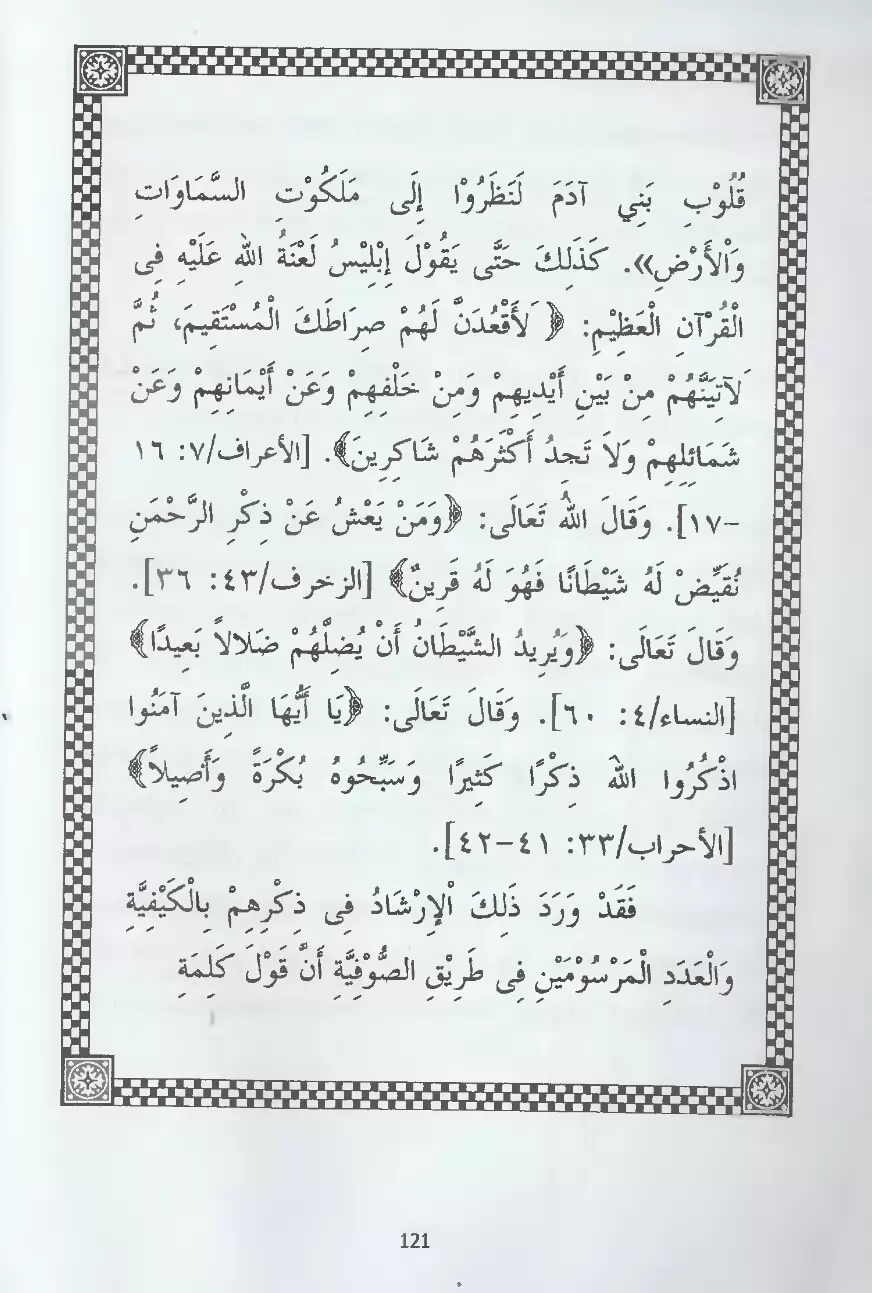 قُلُوْبِ بَنِي آدَمَ لَنَظَرُوْا إِلَى مَلَكُوْتِ السَّمَاوَاتِ
وَالْأَرْضِ». كَذَلِكَ حَتَّى يَقُوْلَ إِبْلِيْسُ لَعْنَةُ اللهِ عَلَيْهِ فِى
الْقُرْآنِ الْعَظِيْمِ: ﴿لَأَقْعُدَنَّ لَهُمْ صِرَاطَكَ الْمُسْتَقِيمَ، ثُمَّ
لَآتِيَنَّهُمْ مِنْ بَيْنِ أَيْدِيهِمْ وَمِنْ خَلْفِهِمْ وَعَنْ أَيْمَانِهِمْ وَعَنْ
شَمَائِلِهِمْ وَلَا تَجِدُ أَكْثَرَهُمْ شَاكِرِينَ﴾. [الأعراف/٧: ١٦
-١٧]. وَقَالَ اللهُ تَعَالَى: ﴿وَمَنْ يَعْشُ عَنْ ذِكْرِ الرَّحْمَنِ
نُقَيِّضْ لَهُ شَيْطَانًا فَهُوَ لَهُ قَرِينٌ﴾ [الزخرف/٤٣: ٣٦].
وَقَالَ تَعَالَى: ﴿وَيُرِيدُ الشَّيْطَانُ أَنْ يُضِلَّهُمْ ضَلَالاً بَعِيدًا﴾
[النساء/٤: ٦٠]. وَقَالَ تَعَالَى: ﴿يَا أَيُّهَا الَّذِينَ آمَنُوا
اذْكُرُوا اللهَ ذِكْرًا كَثِيرًا وَسَبِّحُوهُ بُكْرَةً وَأَصِيلاً﴾
[الأحزاب/٣٣: ٤١-٤٢].
فَقَدْ وَرَدَ ذَلِكَ الْإِرْشَادُ فِى ذِكْرِهِمْ بِالْكَيْفِيَّةِ
وَالْعَدَدِ الْمَرْسُوْمَيْنِ فِى طَرِيْقِ الصُّوْفِيَّةِ أَنَّ قَوْلَ كَلِمَةِ
121